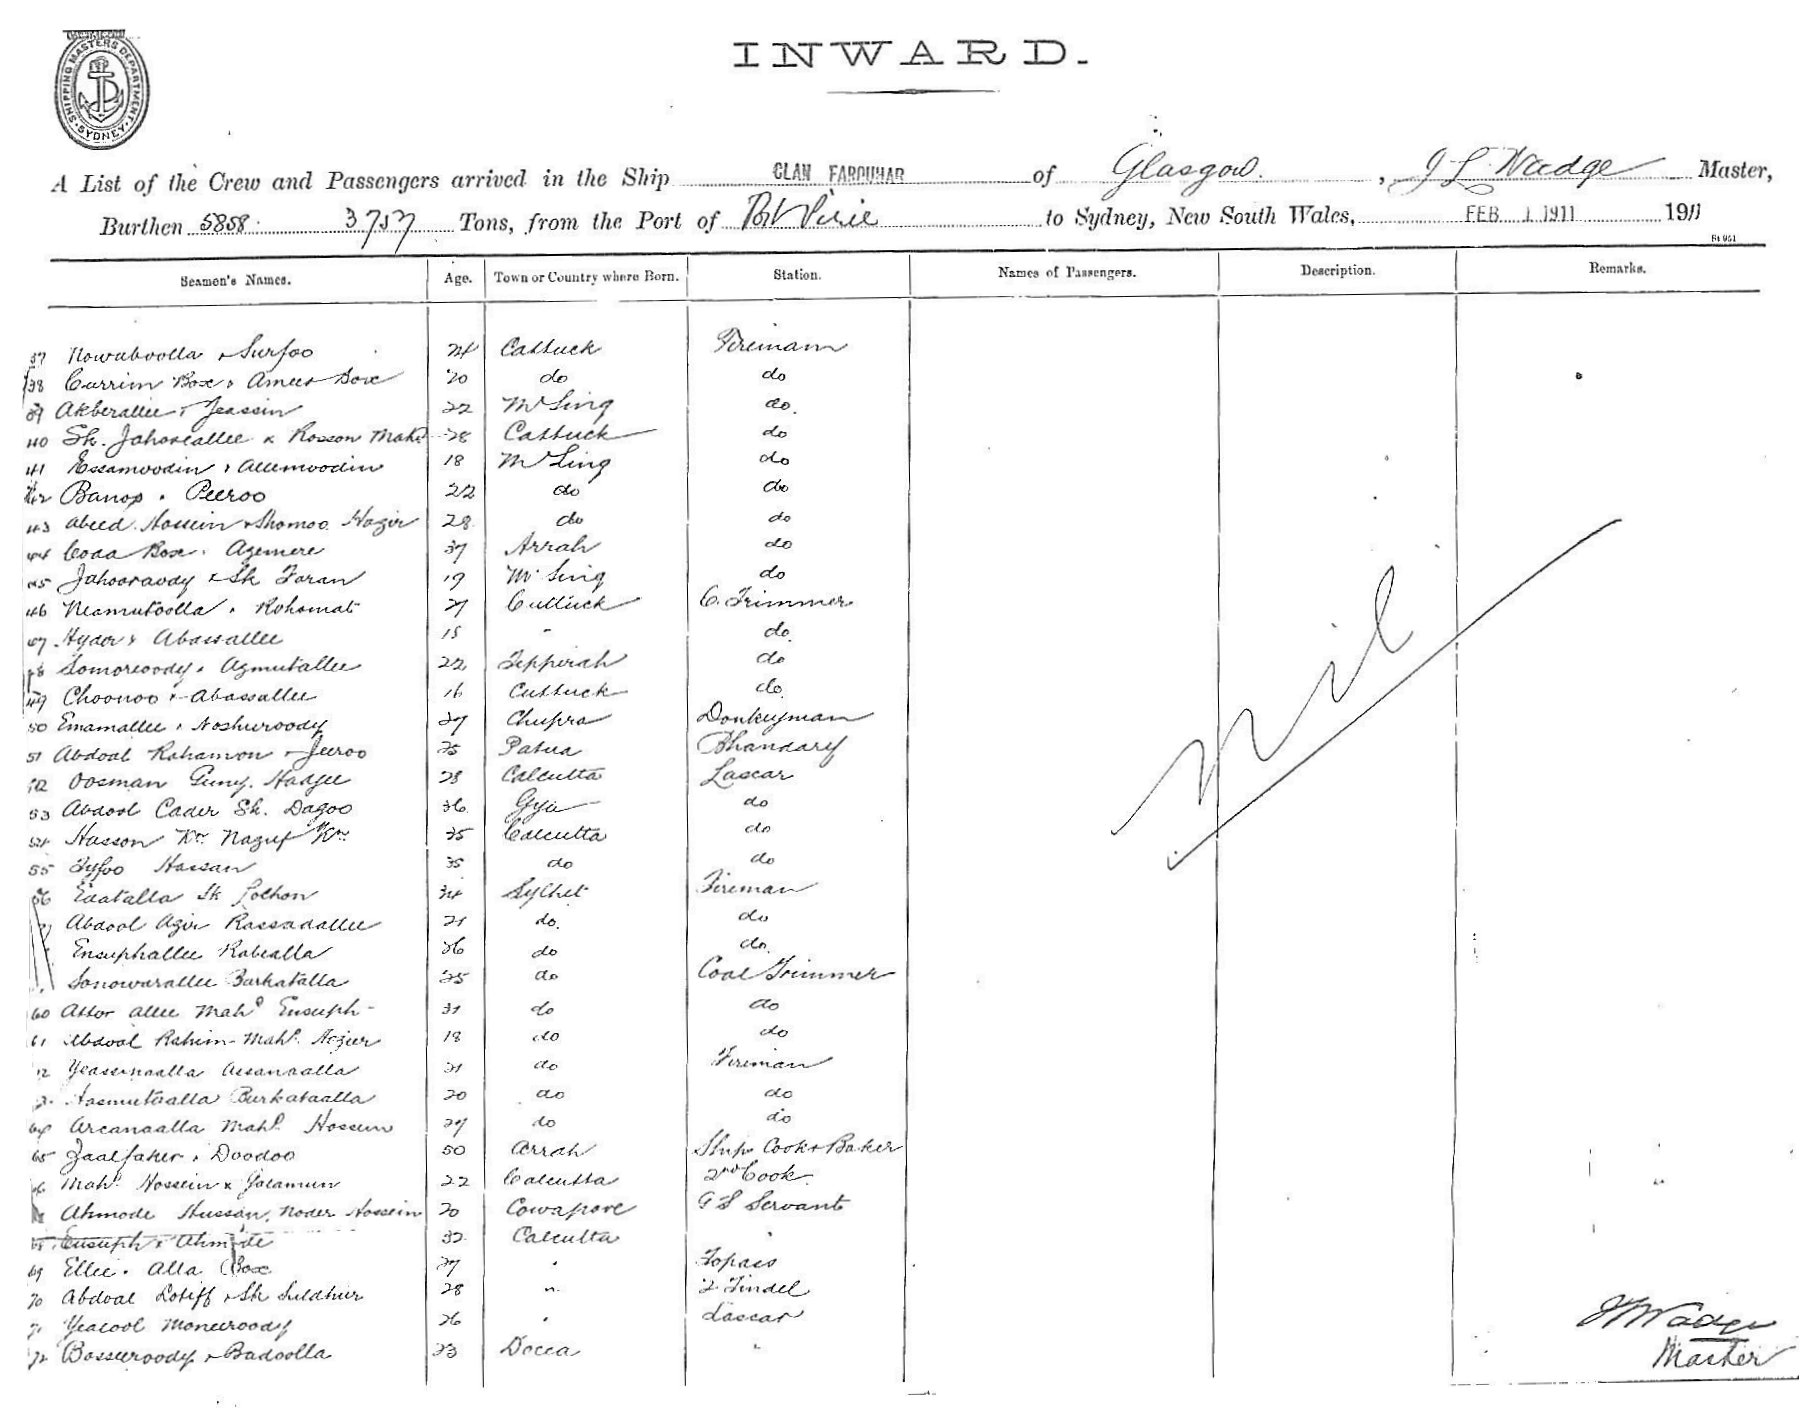 SHIPPING MASTERS DEPARTMENT
SYDNEY
INWARD.
A List of the Crew and Passengers arrived in the Ship CLAN FARQUHAR of Glasgow. , J L Wadge Master,
Burthen 5858. 3757 Tons, from the Port of Port Pirie to Sydney, New South Wales, FEB 1 1911 1911
St 951
Seamen's Names. Age. Town or Country where Born. Station. Names of Passengers. Description. Remarks.
37 Nowaboolla & Surfoo 24 Cattuck Fireman
38 Currim Box & Ameer Box 20 do do
39 Akberallee & Jeassin 22 Mr Sing do.
40 Sk. Jahoreallee & Rosson Mahd 28 Cattuck do
41 Essamoodin & Allimoodin 18 Mr Sing do
42 Banoo & Peeroo 22 do do
43 Abeed Hossein & Shomoo Hazir 28 do do
44 Coda Box & Azemere 37 Arrah do
45 Jahooraddy & Sk Foran 19 Mr Sing do
46 Neamutoolla & Rohomat 27 Cuttuck C. Trimmer
47 Hyder & Abassallee 18 " do.
48 Somorooddy & Azmutallee 22 Tipperah do
49 Choonoo & Abassallee 16 Cuttuck do.
50 Emamallee & Noshuroody 37 Chupra Donkeyman
51 Abdool Rahamon & Jeeroo 25 Patna Bhandary
52 Oosman Guny. Hadjee 28 Calcutta Lascar
53 Abdool Cader Sk. Dagoo 36 Gya do
54 Hasson Kn Nazuf Kn 35 Calcutta do
55 Fyfoo Hassan 35 do do
56 Edatalla Sk Lochon 34 Sylhet Fireman
Abdool Azir Rassadallee 21 do. do
Ensuphallee Rabealla 36 do do.
Sonowarallee Barkatalla 25 do Coal Trimmer
60 Attor Allee Mahd Ensuph 31 do do
61 Abdool Rahim Mahd. Nozeer 18 do do
Yeassinaalla Assanaalla 21 do Fireman
Hasmutaalla Burkataalla 20 do do
64 Arcanaalla Mahd. Hossein 27 do do
65 Zaalfaker & Doodoo 50 Arrah Ships Cook & Baker
66 Mahd Hossein & Golamun 22 Calcutta 2nd Cook
Ahmode Hussan, Noder Hossein 20 Cowapore G S Servant
68 Ensuph & Ahmode 32 Calcutta "
69 Ellie & Alla Box 37 " Topass
70 Abdool Lotiff & Sk Suldhur 28 " 2 Tindel
71 Yeacool Moneeroody 26 " Lascar
72 Bosseroody & Badoolla 23 Dacca "
Nil
J L Wadge
Master